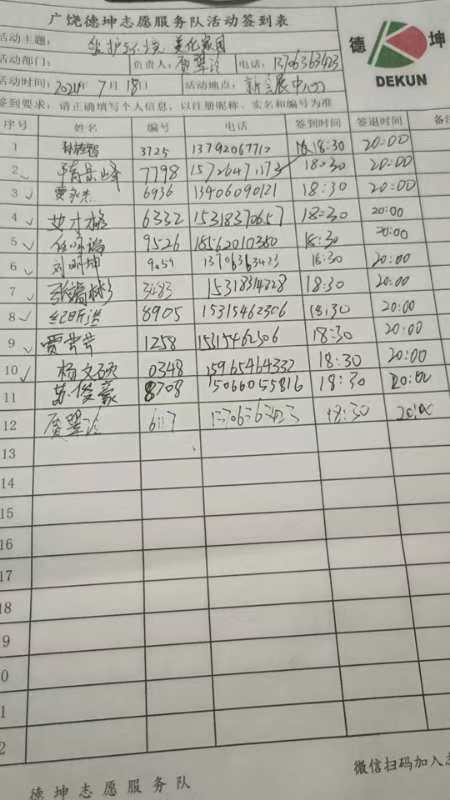 广饶德坤志愿服务队活动签到表
活动主题: 维护环境 美化家园
活动部门: 负责人: 电话: 13706363423
活动时间: 2024年7月18日 活动地点: 新会展中心
签到要求: 请正确填写个人信息, 以注册昵称、实名和编号为准
德 坤
DEKUN
序号 姓名 编号 电话 签到时间 签退时间 备注
1 3725 13792067712 18:30 20:00
2 7798 15726471173 18:30 20:00
3 贾永杰 6936 13406090121 18:30 20:00
4 6332 15318370657 18:30 20:00
5 9526 18562010380 18:30 20:00
6 刘明坤 9059 13706363423 18:30 20:00
7 3683 15318314228 18:30 20:00
8 纪昕洪 8905 15315462306 18:30 20:00
9 贾芸芸 1258 15315462306 18:30 20:00
10 杨文硕 0348 15965464332 18:30 20:00
11 苏俊豪 8708 15066055816 18:30 20:00
12 6117 13706363423 18:30 20:00
13
14
15
16
17
18
9
0
1
2
微信扫码加入
德坤志愿服务队